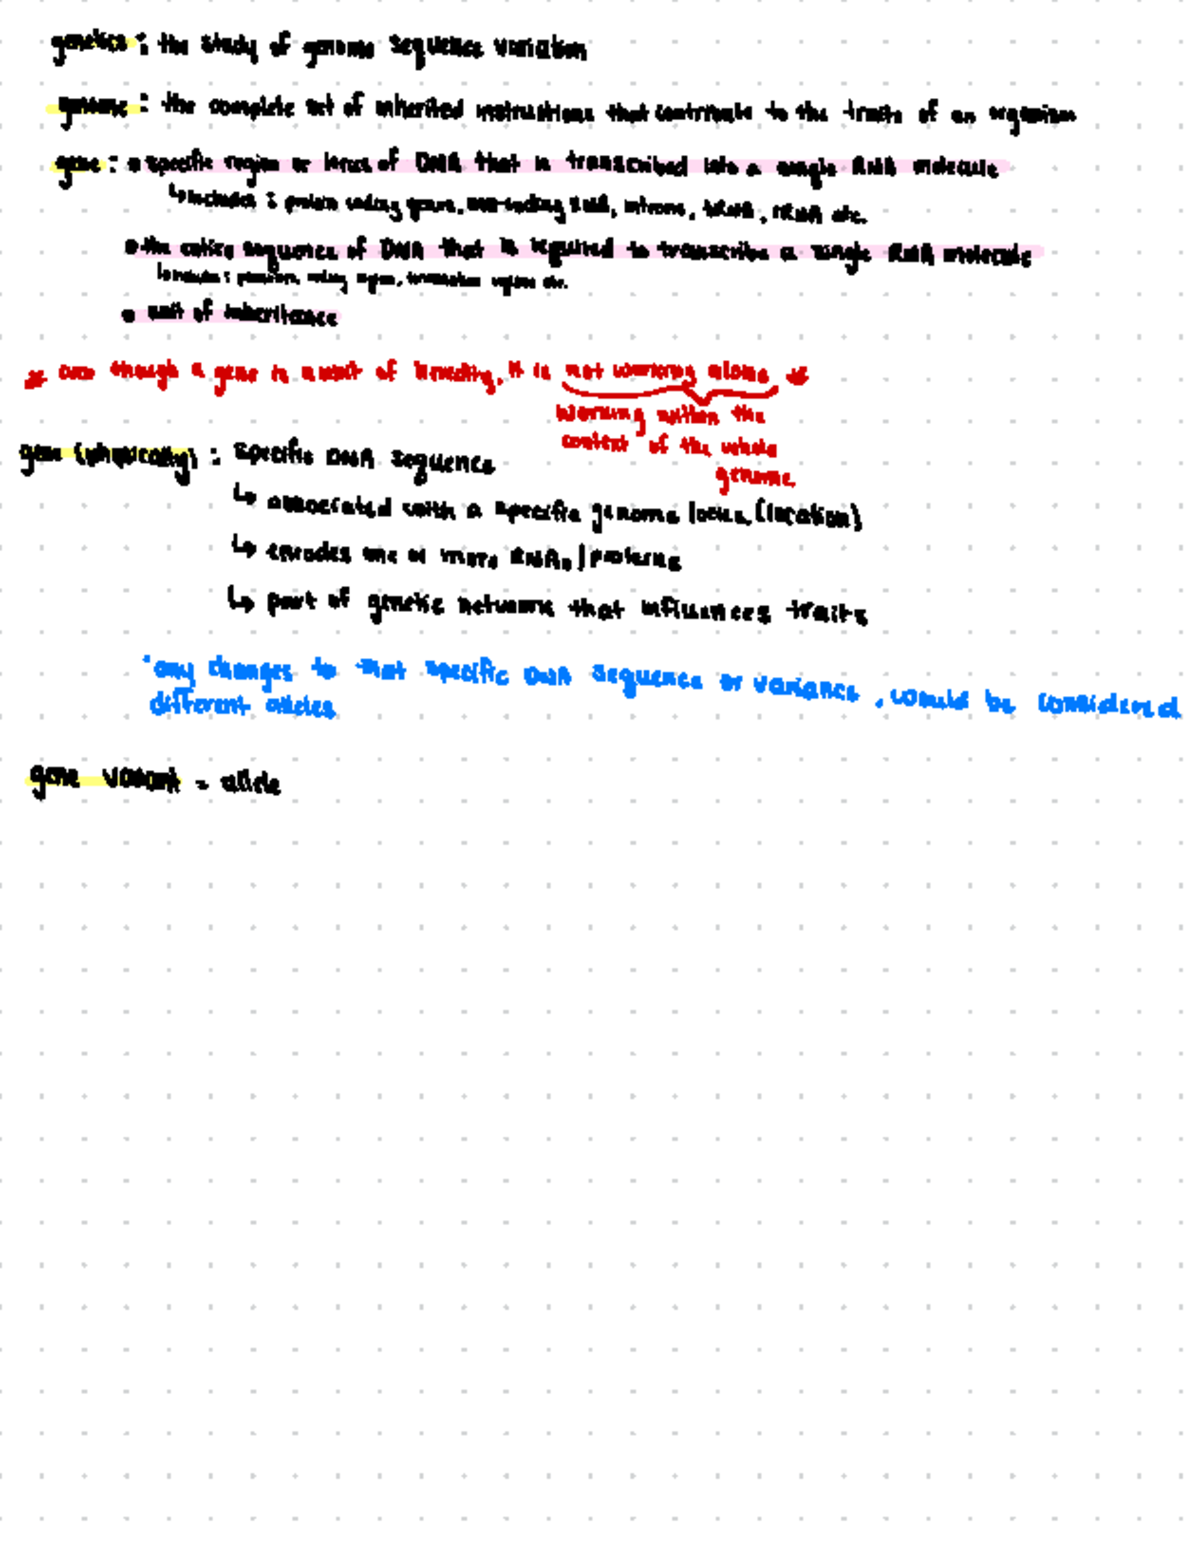 genetics : the study of genome sequence variation
genome : the complete set of inherited instructions that contribute to the traits of an organism
gene : • specific region or locus of DNA that is transcribed into a single RNA molecule
↳ includes : protein coding genes, non-coding RNA, introns, tRNA, rRNA etc.
• the entire sequence of DNA that is required to transcribe a single RNA molecule
↳ includes : promoters, coding region, termination region etc.
• unit of inheritance
* even though a gene is a unit of heredity, it is not working alone *
working within the
context of the whole
genome.
gene (physically) : specific DNA sequence
↳ associated with a specific genome locus (location)
↳ encodes one or more RNAs / proteins
↳ part of genetic network that influences traits
*any changes to that specific DNA sequence or variance, would be considered
different alleles
gene variant = allele